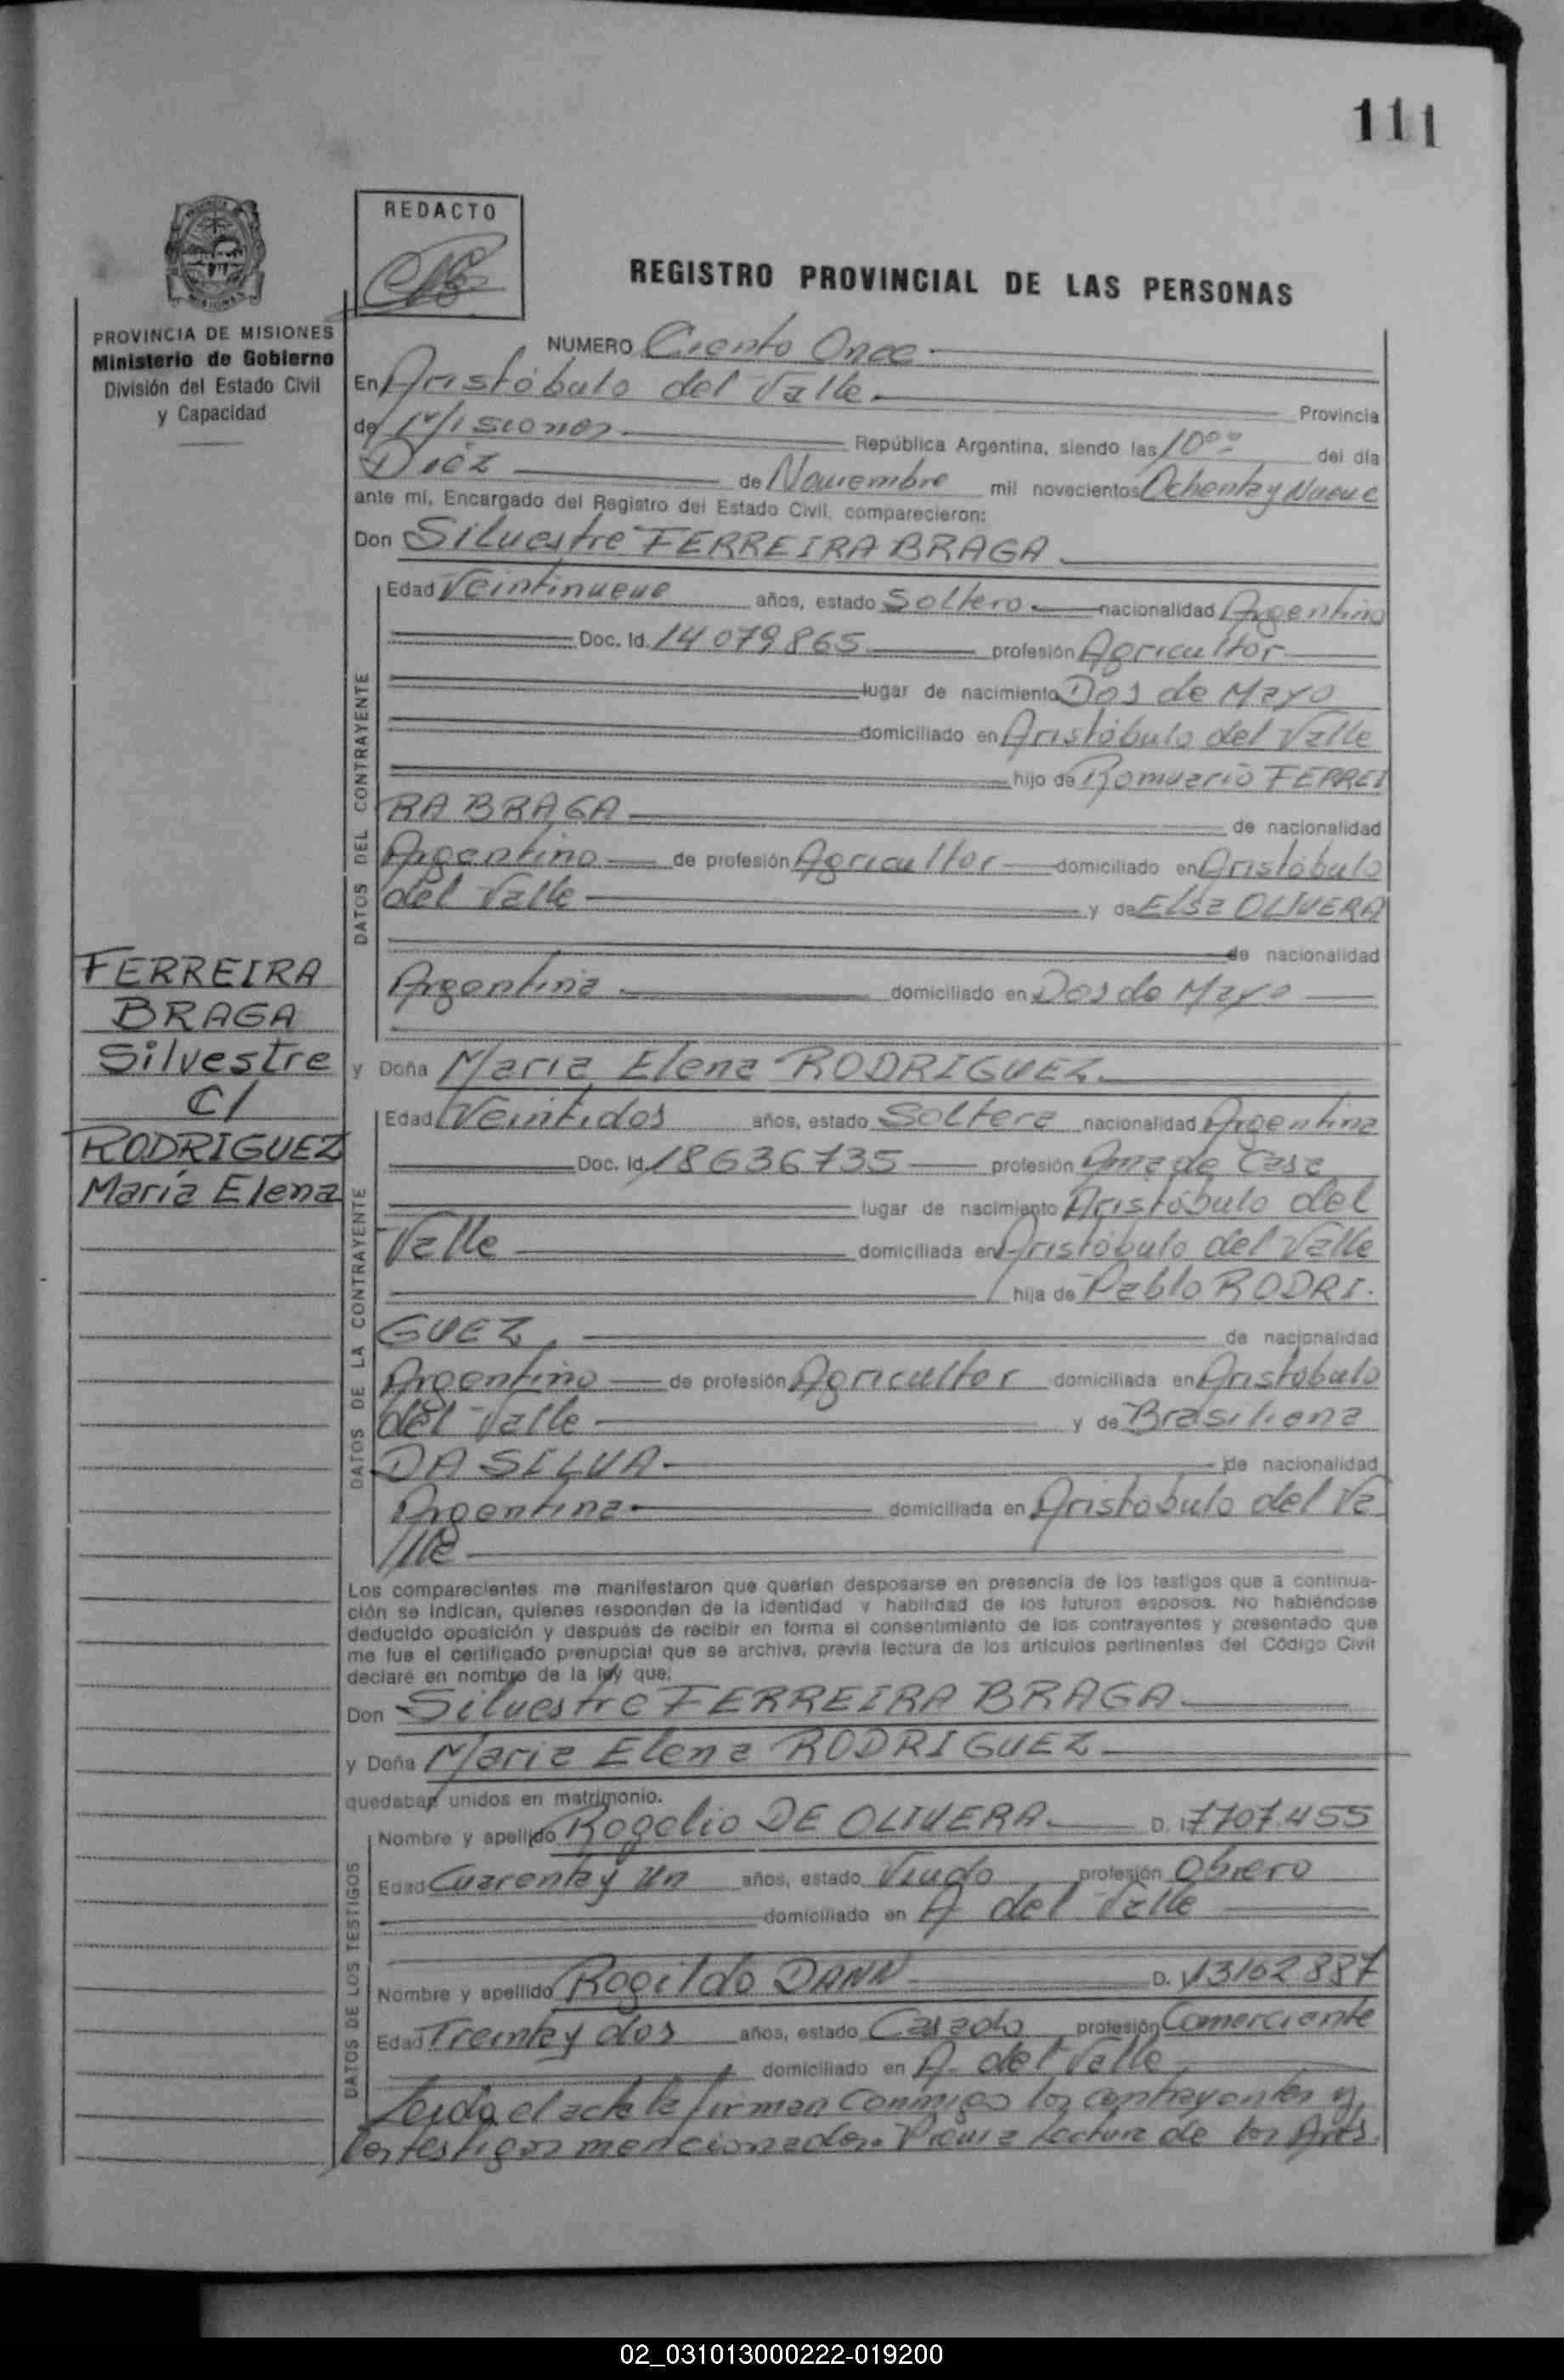 111
REDACTO
REGISTRO PROVINCIAL DE LAS PERSONAS
MISIONES
PROVINCIA DE MISIONES
Ministerio de Gobierno
División del Estado Civil
y Capacidad
NUMERO Ciento Once
En Aristóbulo del Valle
Provincia
de Misiones República Argentina, siendo las 10°° del día
Diéz de Noviembre mil novecientos Ochenta y Nueve
ante mí, Encargado del Registro del Estado Civil, comparecieron:
Don Silvestre FERREIRA BRAGA
DATOS DEL CONTRAYENTE
Edad Veintinueve años, estado Soltero nacionalidad Argentino
Doc. Id. 14079865 profesión Agricultor
lugar de nacimiento Dos de Mayo
domiciliado en Aristóbulo del Valle
hijo de Romuario FERREI
RA BRAGA de nacionalidad
Argentino de profesión Agricultor domiciliado en Aristóbulo
del Valle y de Elsa OLIVERA
de nacionalidad
Argentina domiciliado en Dos de Mayo
FERREIRA
BRAGA
Silvestre
C/
RODRIGUEZ
María Elena
y Doña Maria Elena RODRIGUEZ
DATOS DE LA CONTRAYENTE
Edad Veintidos años, estado Soltera nacionalidad Argentina
Doc. Id. 18636735 profesión Ama de Casa
lugar de nacimiento Aristóbulo del
Valle domiciliada en Aristóbulo del Valle
hija de Pablo RODRI.
GUEZ de nacionalidad
Argentino de profesión Agricultor domiciliada en Aristóbulo
del Valle y de Brasiliana
DA SILVA de nacionalidad
Argentina domiciliada en Aristóbulo del Va
lle
Los comparecientes me manifestaron que querían desposarse en presencia de los testigos que a continua-
ción se indican, quienes responden de la identidad y habilidad de los futuros esposos. No habiéndose
deducido oposición y después de recibir en forma el consentimiento de los contrayentes y presentado que
me fue el certificado prenupcial que se archiva, previa lectura de los artículos pertinentes del Código Civil
declaré en nombre de la ley que:
Don Silvestre FERREIRA BRAGA
y Doña Maria Elena RODRIGUEZ
quedaban unidos en matrimonio.
DATOS DE LOS TESTIGOS
Nombre y apellido Rogelio DE OLIVERA D. I 7707.455
Edad Cuarenta y Un años, estado Viudo profesión Obrero
domiciliado en A del Valle
Nombre y apellido Rogildo DANN D. I 13162887
Edad Treinta y dos años, estado Casado profesión Comerciante
domiciliado en A. del Valle
Leida el acta la firman conmigo los contrayentes y
los testigos mencionados. Previa Lectura de los Arts.
02_031013000222-019200